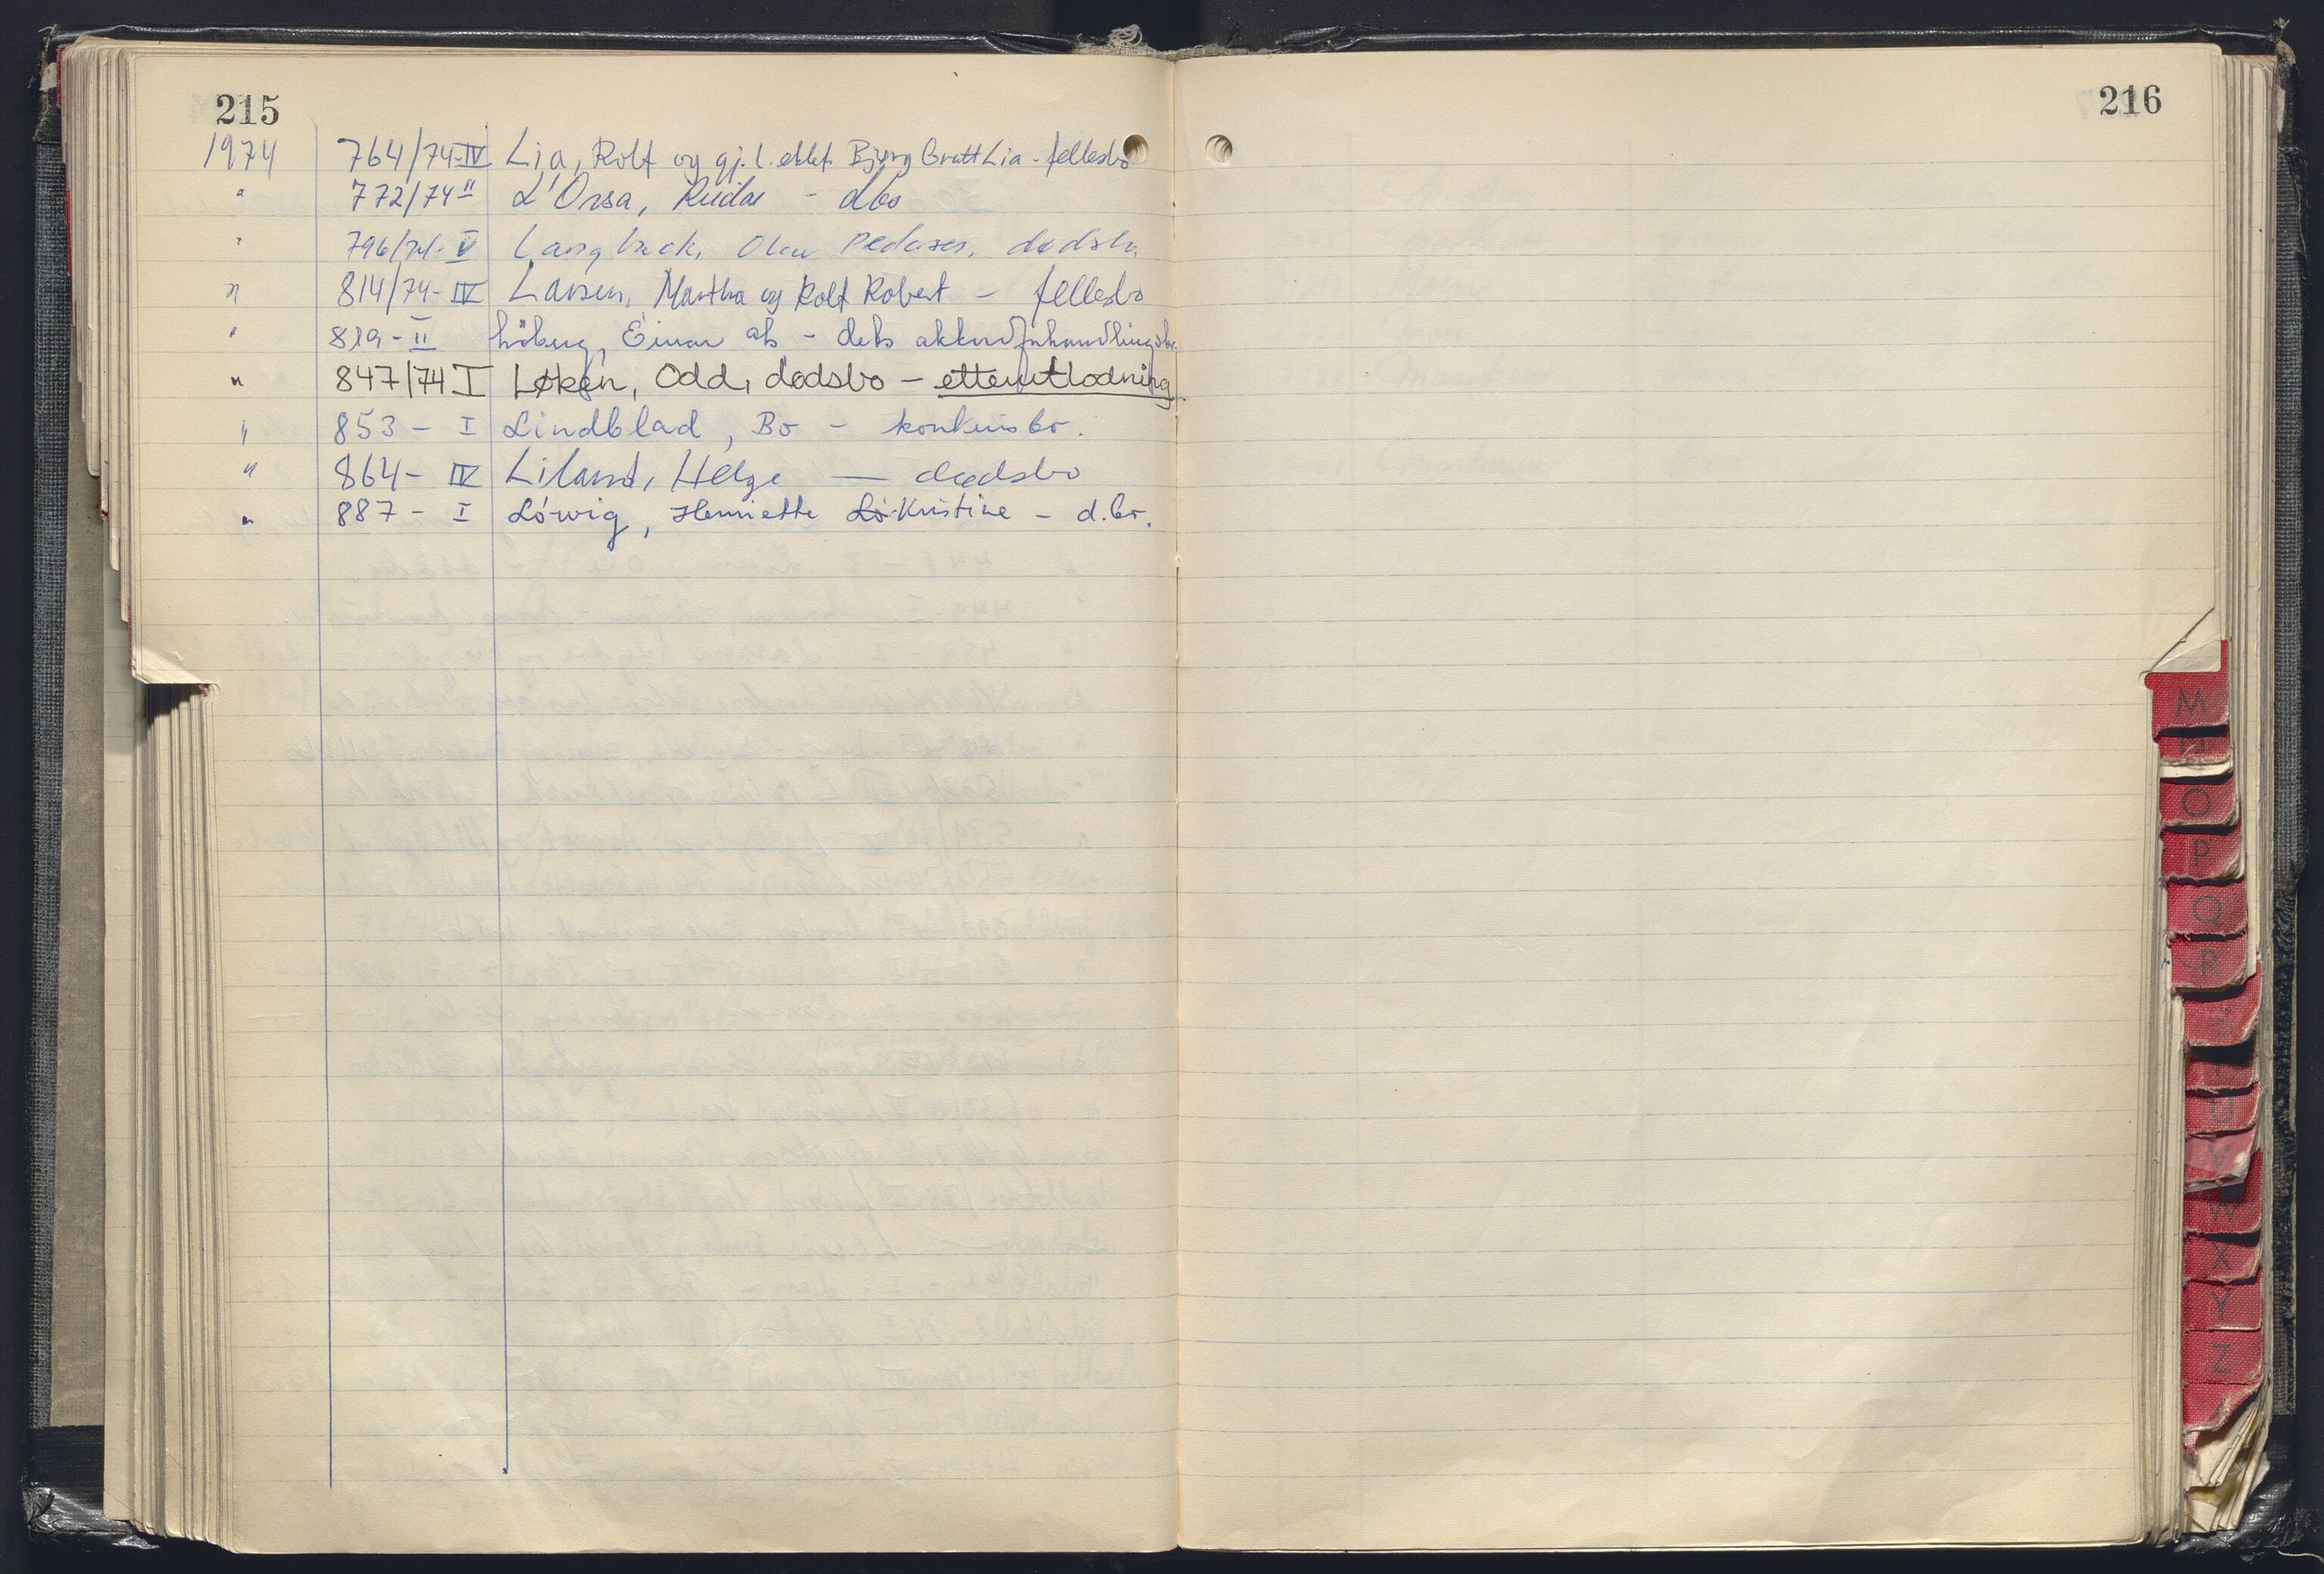 215
1974 764/74-IV Lia, Rolf og gj.l. ektef. Bjørg Bratt Lia - fellesbo
" 772/74 II L'Orsa, Reidar - dbo
" 796/74-V Langback, Olav Pedersen, dødsb.
" 814/74-IV Larsen, Martha og Rolf Robert - fellesbo
" 819-II Löberg, Einar as - dets akkordforhandlingsbo
" 847/74 I Løken, Odd, dødsbo - etterutlodning
" 853 - I Lindblad, Bo - konkursbo.
" 864- IV Liland, Helge — dødsbo
" 887 - I Lówig, Henriette Lö Kristine - d.bo.
216
M
N
O
P
Q
R
S
T
U
V
W
X
Y
Z